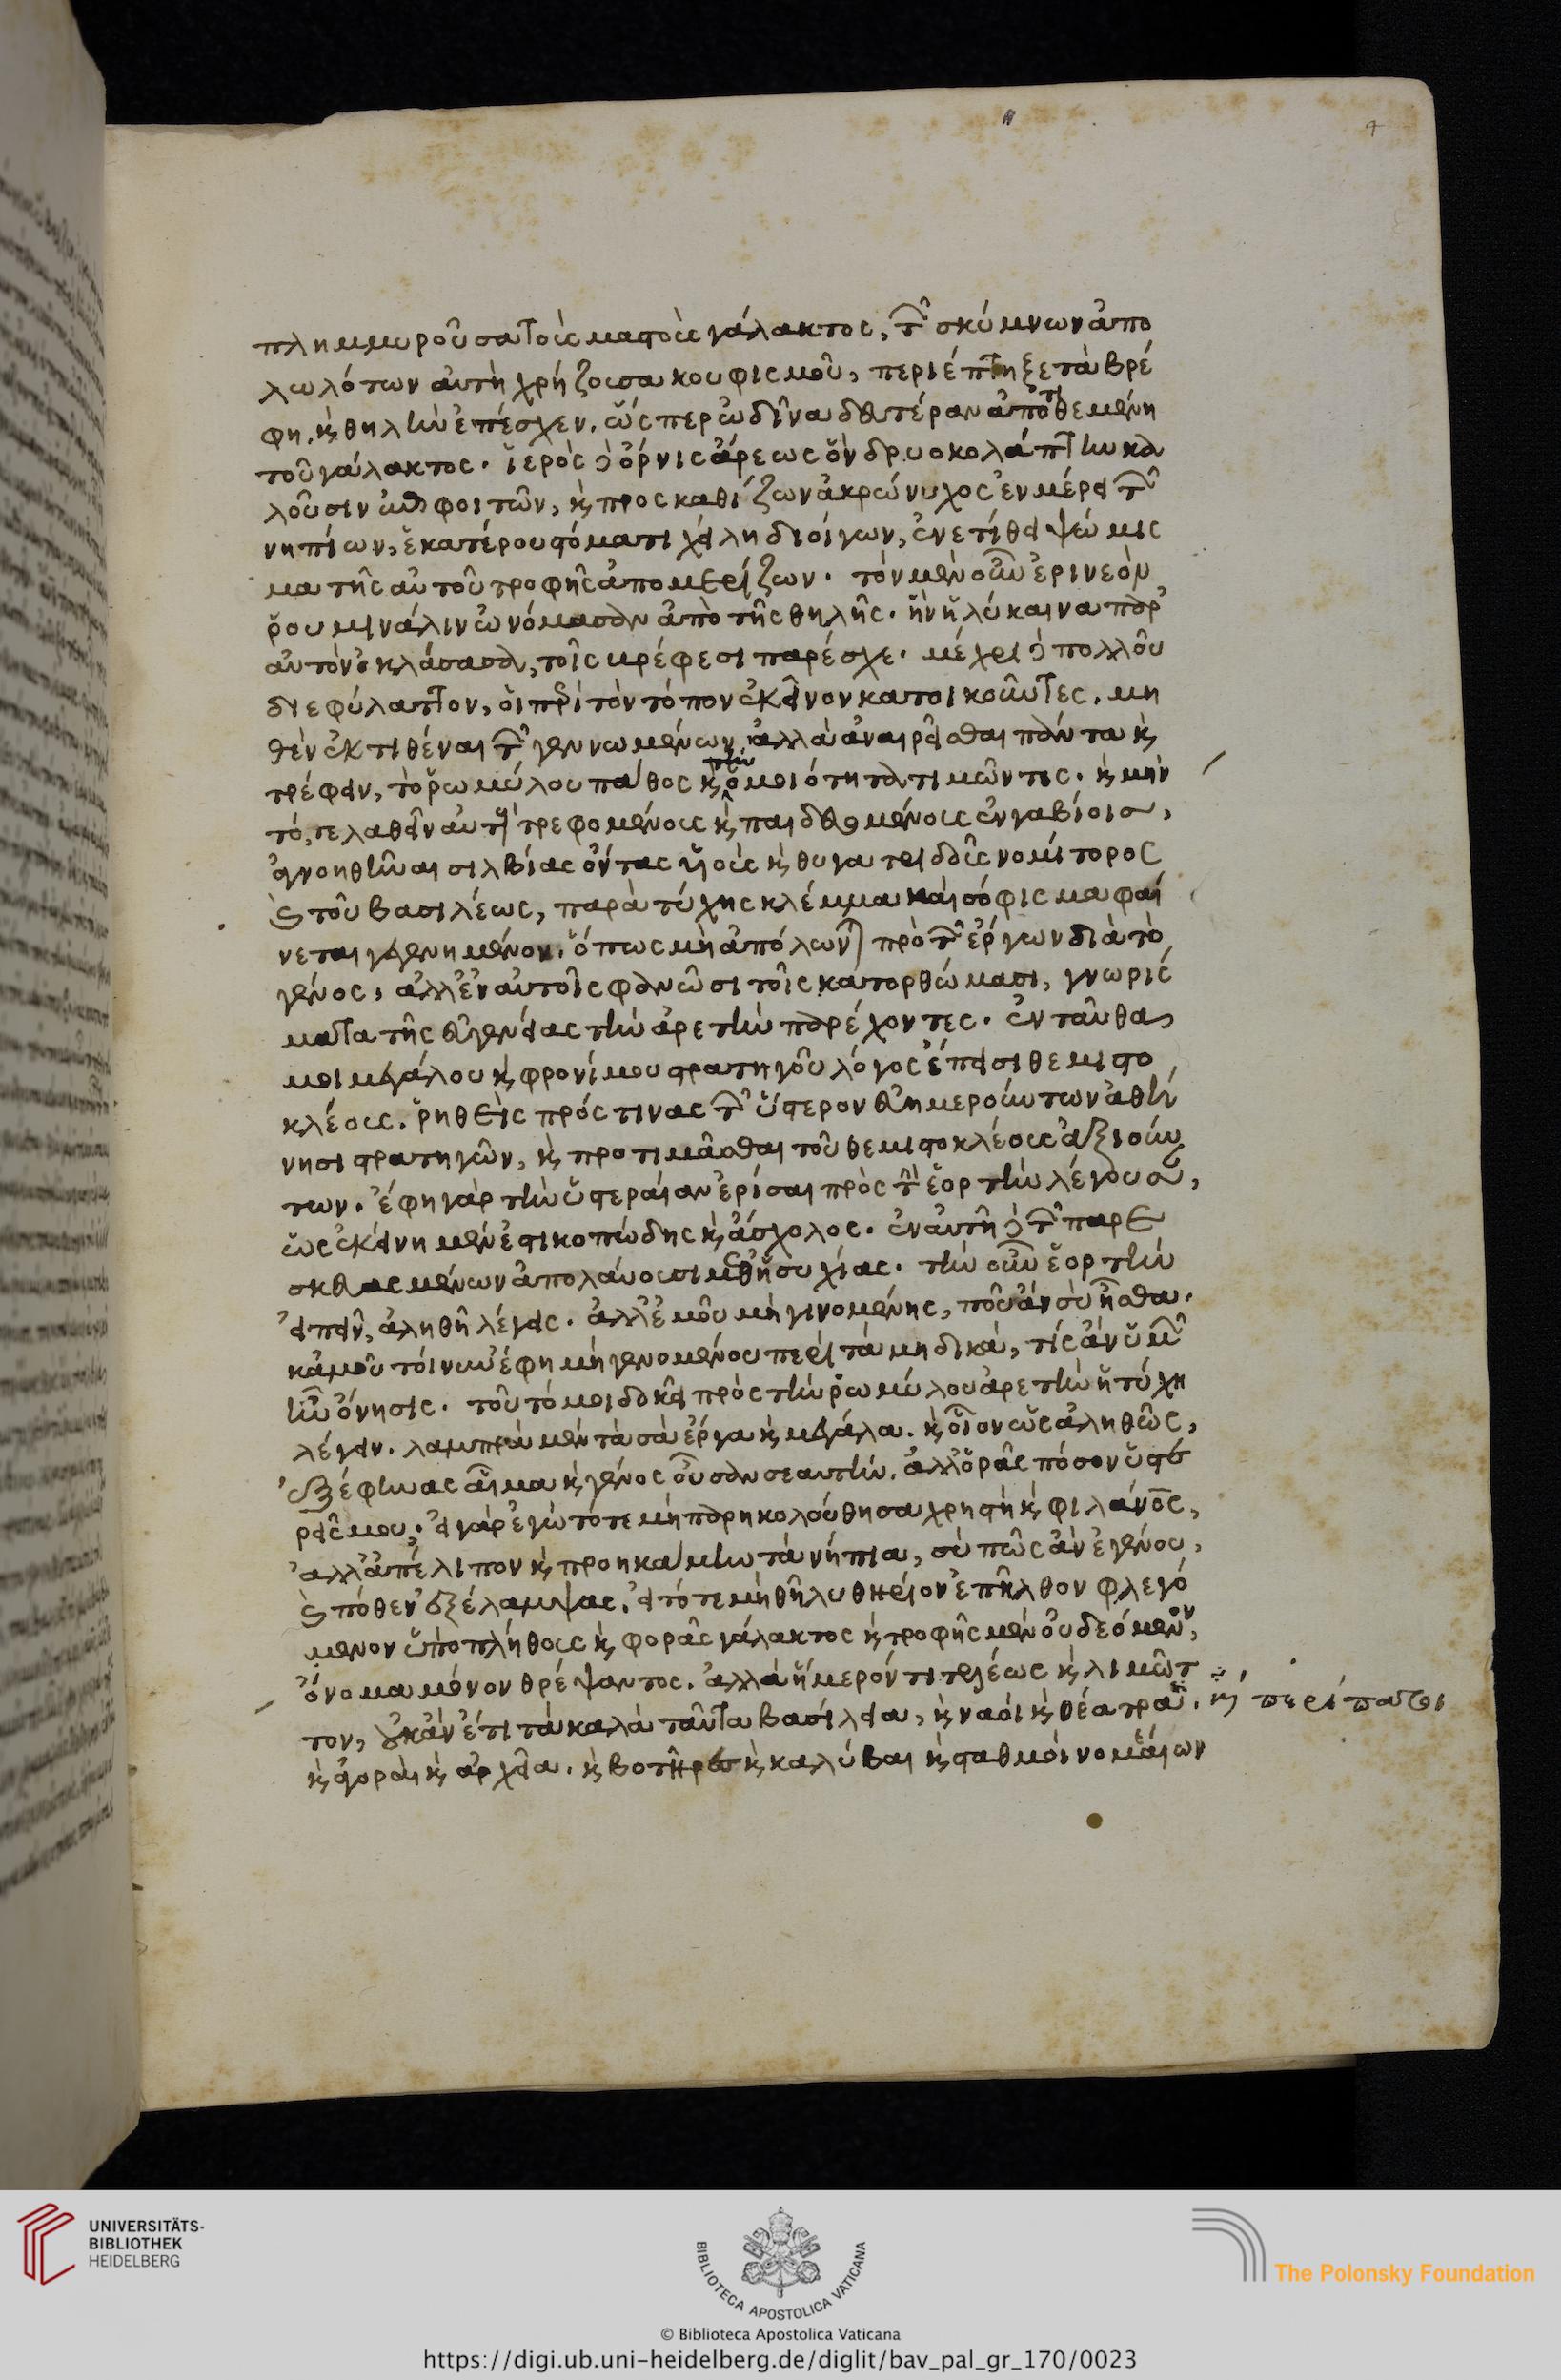 7
πλημμυροῦσα τοὺς μαστοὺς γάλακτος, τῶν σκύμνων ἀπο
λωλότων αὐτὴ χρῄζουσα κουφισμοῦ, περιέπτηξε τὰ βρέ
φη. καὶ θηλὴν ἐπέσχεν. ὥσπερ ὠδῖνα δευτέραν ἀποτιθεμένη
τοῦ γάλακτος. ἱερὸς δὲ ὄρνις ἄρεως ὃν δρυοκολάπτην κα
λοῦσιν ἐπιφοιτῶν, καὶ προσκαθίζων ἀκρώνυχος ἐν μέρει τῶν
νηπίων, ἑκατέρου στόμα τῇ χηλῇ διοίγων, ἐνετίθει ψώμις
μα τῆς αὑτοῦ τροφῆς ἀπομερίζων. τὸν μὲν οὖν ἐρινεὸν
ῥουμινάλιν ὠνόμασαν ἀπὸ τῆς θηλῆς. ἣν ἡ λύκαινα παρ'
αὐτὸν ὀκλάσασα, τοῖς βρέφεσι παρέσχε. μέχρι δὲ πολλοῦ
διεφύλαττον, οἱ περὶ τὸν τόπον ἐκεῖνον κατοικοῦντες. μη
θὲν ἐκτιθέναι τῶν γεννωμένων, ἀλλὰ ἀναιρεῖσθαι πάντα καὶ
τρέφειν, τὸ ῥωμύλου πάθος καὶ τὴν ὁμοιότητα τιμῶντες. καὶ μὴν
τό, τε λαθεῖν αὐτοὺς τρεφομένους καὶ παιδευομένους ἐν γαβίοισ,
ἀγνοηθῆναι σιλβίας ὄντας υἱοὺς καὶ θυγατριδοῦς νομίτορος
τοῦ βασιλέως, παρὰ τύχης κλέμμα καὶ σόφισμα φαί
νεται γεγενημένον. ὅπως μὴ ἀπόλωνται πρὸ τῶν ἔργων διὰ τὸ
γένος, ἀλλ' ἐν αὐτοῖς φανῶσι τοῖς κατορθώμασι, γνωρίσ
ματα τῆς εὐγενείας τὴν ἀρετὴν παρέχοντες. ἐνταῦθα
μοι μεγάλου καὶ φρονίμου στρατηγοῦ λόγος ἔπεισι θεμιστο
κλέους. ῥηθεὶς πρός τινας τῶν ὕστερον εὐημερούντων ἀθή
νησι στρατηγῶν, καὶ προτιμᾶσθαι τοῦ θεμιστοκλέους ἀξιούν
των. ἔφη γὰρ τὴν ὑστεραίαν ἐρίσαι πρὸς τὴν ἑορτὴν λέγουσαν,
ὡς ἐκείνη μέν ἐστι κοπώδης καὶ ἄσχολος. ἐν αὐτῇ δὲ τῶν παρε
σκευασμένων ἀπολαύουσι μεθ' ἡσυχίας. τὴν οὖν ἑορτὴν
εἰπεῖν, ἀληθῆ λέγεις. ἀλλ' ἐμοῦ μὴ γινομένης, ποῦ ἂν σὺ ἦσθα.
κἀμοῦ τοίνυν ἔφη μὴ γενομένου περὶ τὰ μηδικά, τίς ἂν ὑμῶν
ἦν ὄνησις. τοῦτό μοι δοκεῖ πρὸς τὴν ῥωμύλου ἀρετὴν ἡ τύχη
λέγειν. λαμπρὰ μὲν τὰ σὰ ἔργα καὶ μεγάλα. καὶ θεῖον ὡς ἀληθῶς,
ἐξέφηνας αἷμα καὶ γένος οὖσαν σεαυτήν. ἀλλ' ὁρᾷς πόσον ὑστε
ρεῖς μου; εἰ γὰρ ἐγὼ τότε μὴ παρηκολούθησα χρηστὴ καὶ φιλάνος,
ἀλλ' ἀπέλιπον καὶ προηκάμην τὰ νήπια, σὺ πῶς ἂν ἐγένου,
καὶ πόθεν ἐξέλαμψας. εἰ τότε μὴ θῆλυ θηρίον ἐπῆλθον φλεγό
μενον ὑπὸ πλήθους καὶ φορᾶς γάλακτος καὶ τροφῆς μὲν οὐ δεόμενον,
ὄνομα μόνον θρέψαντος. ἀλλὰ ἥμερόν τι τελέως καὶ λιμῶτ
τον, οὐκ ἂν ἔτι τὰ καλὰ ταῦτα βασίλεια, καὶ ναοὶ καὶ θέατρα ἦν. καὶ περίπατοι
καὶ ἀγοραὶ καὶ ἀρχεῖα. καὶ βοτῆρες καὶ καλύβαι καὶ σταθμοὶ νομαίων
UNIVERSITÄTS-
BIBLIOTHEK
HEIDELBERG
BIBLIOTECA APOSTOLICA VATICANA
The Polonsky Foundation
© Biblioteca Apostolica Vaticana
https://digi.ub.uni-heidelberg.de/diglit/bav_pal_gr_170/0023